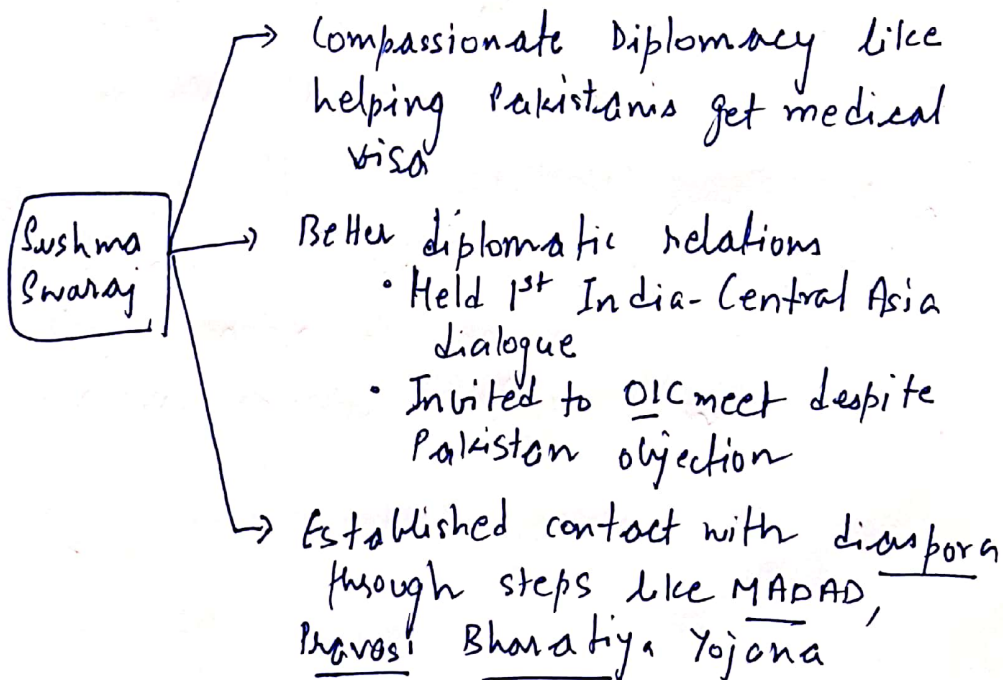 Compassionate Diplomacy like
helping Pakistanis get medical
visa
Sushma
Swaraj
Better diplomatic relations
• Held 1st India-Central Asia
dialogue
• Invited to OIC meet despite
Pakistan objection
Established contact with diaspora
through steps like MADAD,
Pravasi Bharatiya Yojana